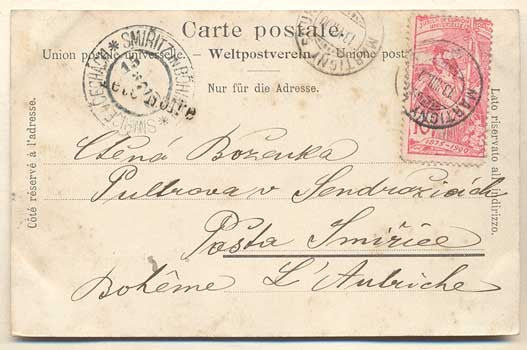 Carte postale.
Union postale universelle – Weltpostverein – Unione postale
Nur für die Adresse.
Côté réservé à l'adresse.
Lato riservato all'indirizzo.
SMIŘICE (ČECHY) * SMIRITZ (BÖHMEN) *
MARTIGNY
MARTIGNY
1875-1900
Ctěná Boženka
Pultrova v Sendražicích
Pošta Smiřice
Bohême L'Autriche